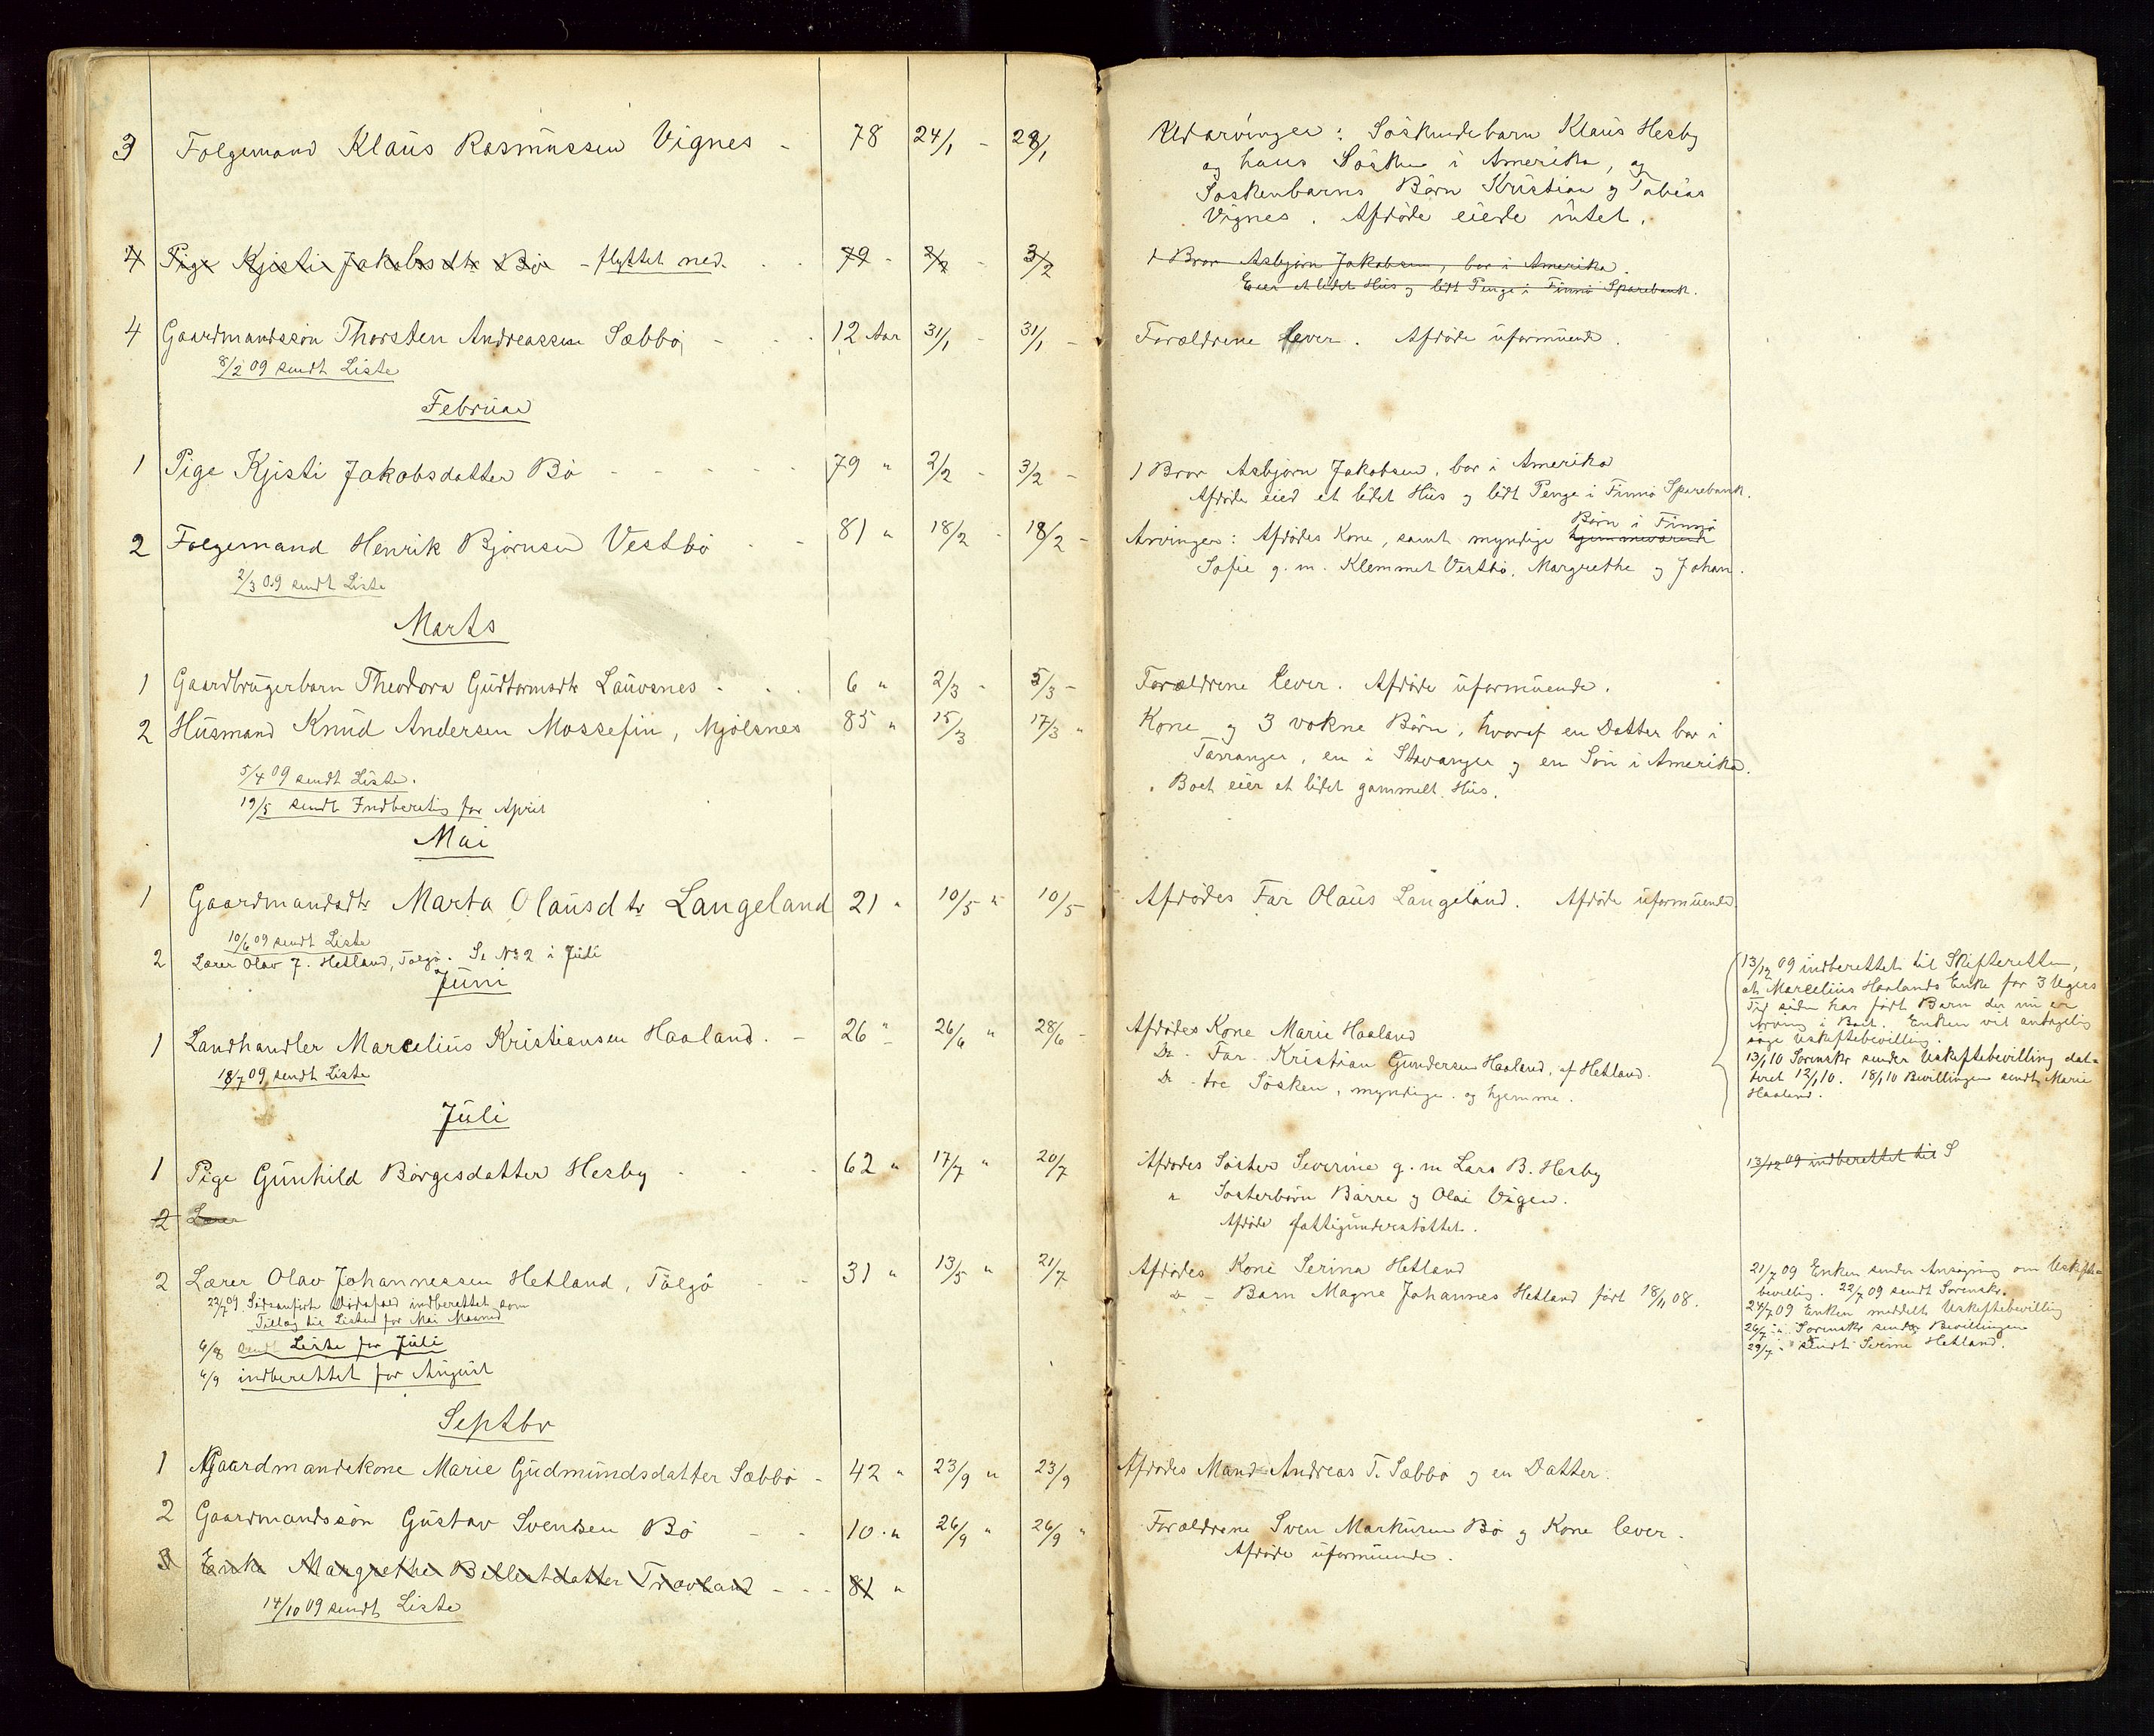 3 Folgemand Klaus Rasmussen Vignes - 78 24/1 - 28/1 Udarvinger: Söskendebarn Klaus Hesby
og hans Sösken i Amerika, og
Söskenbarns Börn Kristian og Tobias
Vignes. Afdöde eiede intet.
4 Pige Kjisti Jakobsdtr Bö - flyttet ned. 79 - 2/2 - 3/2 1 Bror Asbjörn Jakobsen, bor i Amerika.
Eier et lidet Hus og lidt Penge i Finnö Sparebank.
4 Gaardmandssön Thorsten Andreassen Sæbbö - 12 Aar 31/1 - 31/1 - Forældrene lever. Afdöde uformuende.
8/2 09 sendt Liste
Februar
1 Pige Kjisti Jakobsdatter Bö - - - - 79 " 2/2 - 3/2 - 1 Bror Asbjörn Jakobsen, bor i Amerika
Afdöde eied et lidet Hus og lidt Penge i Finnö Sparebank.
Börn i Finnö
2 Folgemand Henrik Björnsen Vestbö - - 81 " 18/2 - 18/2 - Arvinger: Afdödes Kone, samt myndige hjemmeværende
Sofie g. m. Klemmet Vestbö, Margrethe og Johan.
2/3 09 sendt Liste
Marts
1 Gaardbrugerbarn Theodora Gudtormsdtr Lauvsnes - 6 " 2/3 - 5/3 - Forældrene lever. Afdöde uformuende.
2 Husmand Knud Andersen Mossefin, Mjölsnes 85 " 15/3 17/3 " Kone og 3 vokne Börn, hvoraf en Datter bor i
Tarranger, en i Stavanger og en Sön i Amerika.
Boet eier et lidet gammelt Hus.
5/4 09 sendt Liste.
19/5 sendt Indberetn for April
Mai
1 Gaardmandsdtr Marta Olausdtr Langeland 21 " 10/5 " 10/5 Afdödes Far Olaus Langeland. Afdöde uformuende.
10/6 09 sendt Liste
2 Lærer Olav J. Hetland, Talgö. Se No 2 i Juli
Juni
13/12 09 indberettet til Skifteretten,
at Marcelius Haalands Enke for 3 Ugers
Tid siden har födt Barn der nu er
Arving i Boet. Enken vil antagelig
söge Uskiftebevilling.
13/1 10 Sorenskr sender Uskiftebevilling dat=
teret 12/1 10. 18/1 10 Bevillingen sendt Marie
Haaland.
1 Landhandler Marcelius Kristiansen Haaland. - 26 " 26/6 " 28/6 - Afdödes Kone Marie Haaland
Do - Far Kristian Gundersen Haaland, af Hetland.
Do - tre Sösken, myndige og hjemme.
18/7 09 sendt Liste
Juli
1 Pige Gunhild Börgesdatter Hesby - - - 62 " 17/7 " 20/7 Afdödes Söster Severine g. m Lars B. Hesby 13/12 09 indberettet til S
" Sösterbörn Börre og Olai Vigen.
Afdöde fattigunderstöttet.
2 Lærer
2 Lærer Olav Johannessen Hetland, Talgö - - 31 " 13/5 " 21/7 Afdödes Kone Serina Hetland
" - Barn Magne Johannes Hetland födt 18/11 08.
21/7 09 Enken sender Ansögning om Uskifte=
bevilling. 22/7 09 sendt Sorenskr.
24/7 09 Enken meddelt Uskiftebevilling
26/7 " Sorenskr sender Bevillingen
29/7 " sendt Serine Hetland.
22/7 09 Sidstanførte Dödsfald indberettet som
Tillæg til Listen for Mai Maaned
6/8 sendt Liste for Juli
4/9 indberettet for August
Septbr
1 Gaardmandskone Marie Gudmundsdatter Sæbbö - 42 " 23/9 " 23/9 Afdödes Mand Andreas T. Sæbbö og en Datter.
2 Gaardmandssön Gustav Svendsen Bö - - 10 " 26/9 " 26/9 " Forældrene Sven Markusen Bö og Kone lever.
Afdöde uformuende.
3 Enke Margrethe Bellestdatter Travland - - - 81 "
14/10 09 sendt Liste